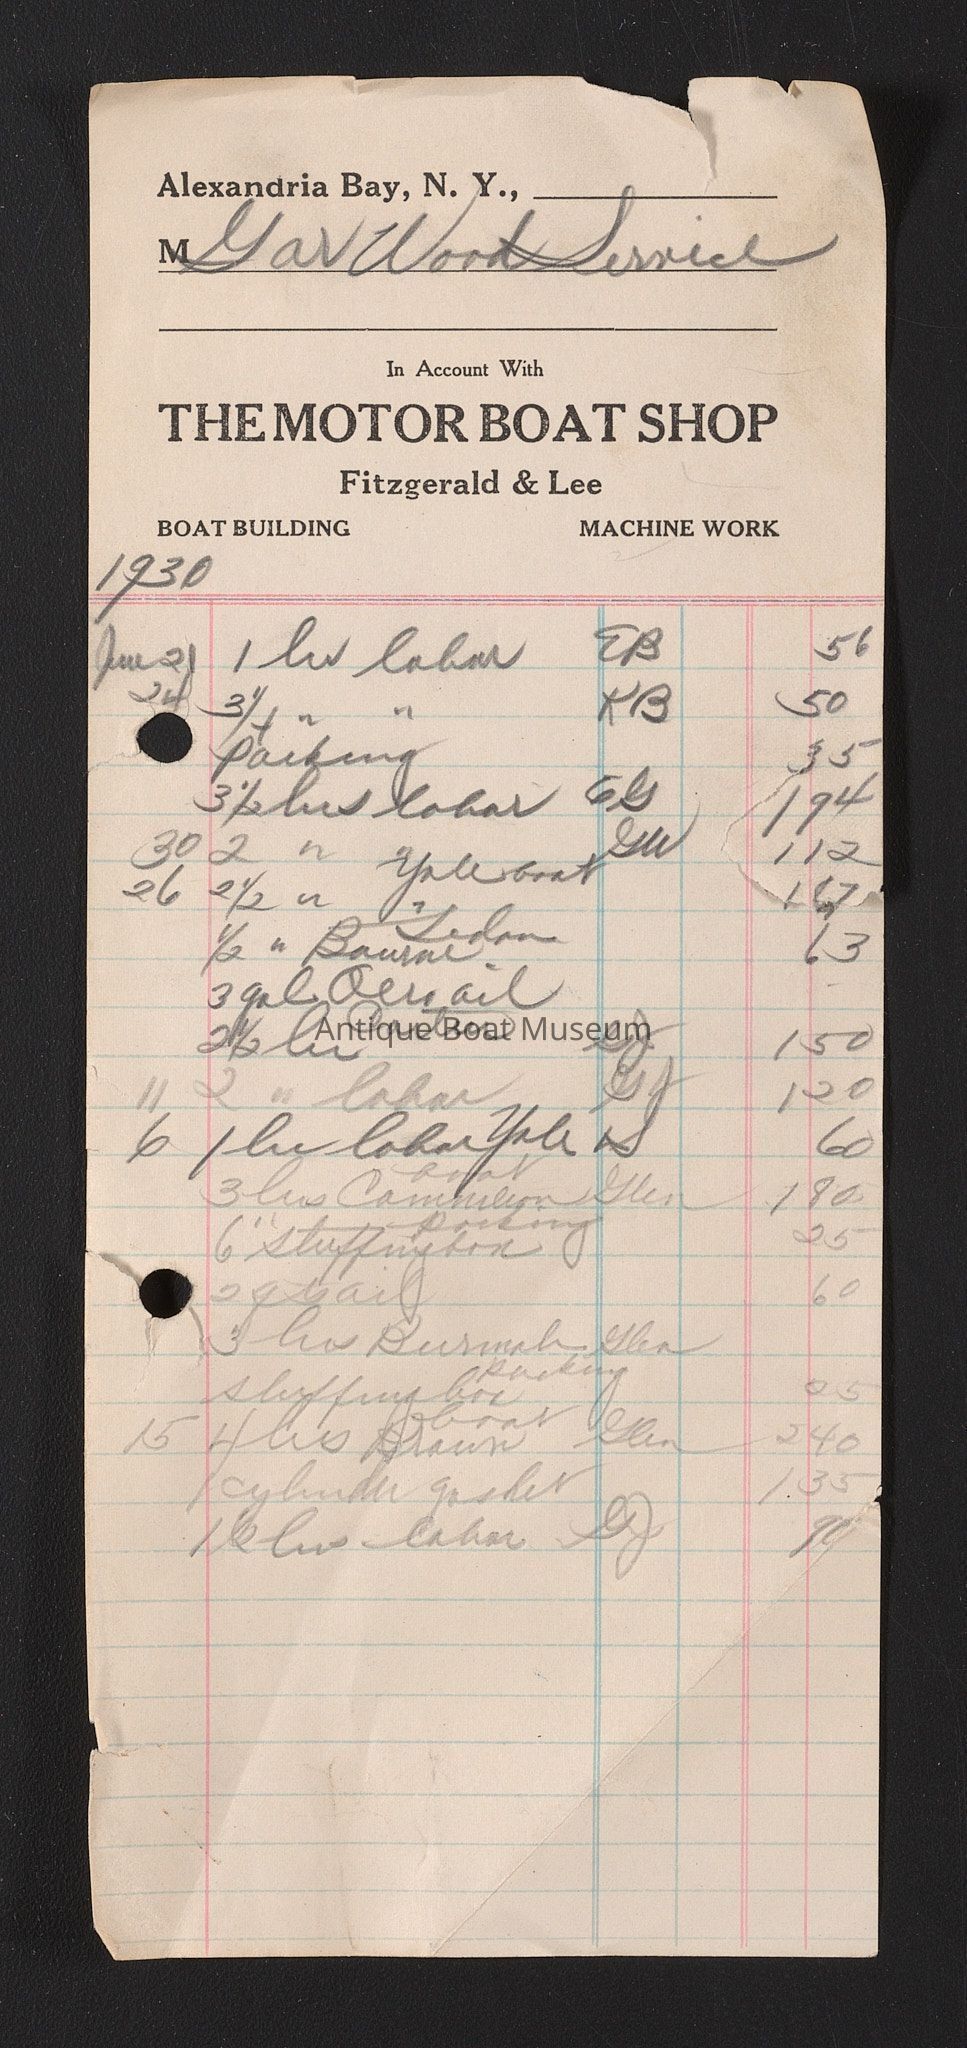 Alexandria Bay, N. Y.,
M Gar Wood Service
In Account With
THE MOTOR BOAT SHOP
Fitzgerald & Lee
BOAT BUILDING MACHINE WORK
1930
June 21 1 hr labor EB 56
24 3/4 " " KB 50
Packing 35
3 1/2 hrs labor GG 194
30 2 " " GW 112
26 2 1/2 " Yale boat
1/2 " Bourne Sedan 63
3 gal oil
2 1/2 hr 150
11 2 " labor GJ 120
6 1 hr labor Yale boat 60
3 hrs Glen 180
6" Stuffing box packing 25
2 qts oil 60
3 hrs Burmah Glen
stuffing box packing 25
15 4 hrs Brown boat Glen 240
1 cylinder gasket 135
1 1/2 hrs labor GJ 90
Antique Boat Museum